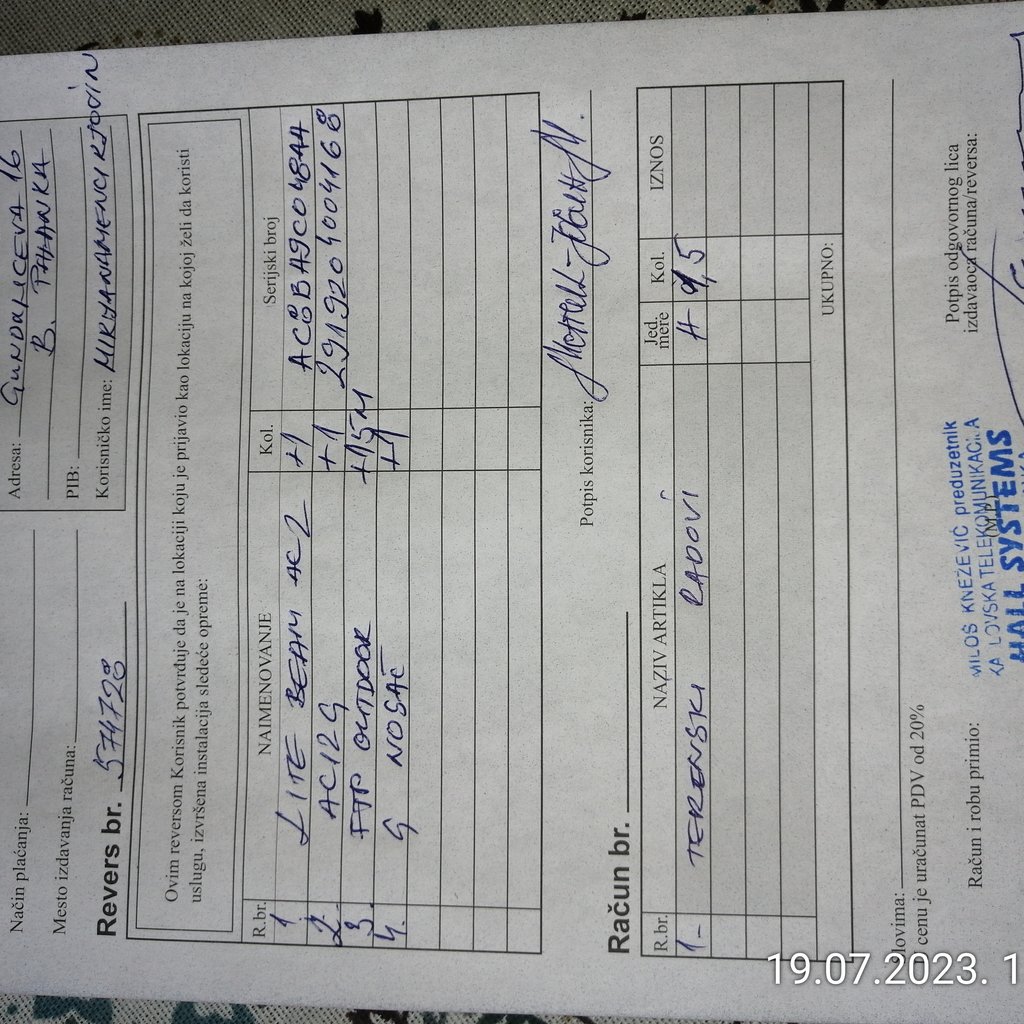 Način plaćanja:
Mesto izdavanja računa:
Adresa: GUNDULIĆEVA 16
B. PALANKA
PIB:
Korisničko ime:
Revers br. 574728
Ovim reversom Korisnik potvrđuje da je na lokaciji koju je prijavio kao lokaciju na kojoj želi da koristi
uslugu, izvršena instalacija sledeće opreme:
R.br. NAIMENOVANJE Kol. Serijski broj
1 LITE BEAM AC 2 +1 AC8BA9C04844
2. AC12G +1 2919204004168
3. FTP OUTDOOR +15M
4. G NOSAČ +1
Potpis korisnika:
Račun br.
R.br. NAZIV ARTIKLA Jed. mere Kol. IZNOS
1- TERENSKI RADOVI H
UKUPNO:
lovima:
cenu je uračunat PDV od 20%
Račun i robu primio:
(M.P.)
Potpis odgovornog lica
izdavaoca računa/reversa:
MILOŠ KNEŽEVIĆ preduzetnik
TELEKOMUNIKACIJA
HALL SYSTEMS
19.07.2023. 1